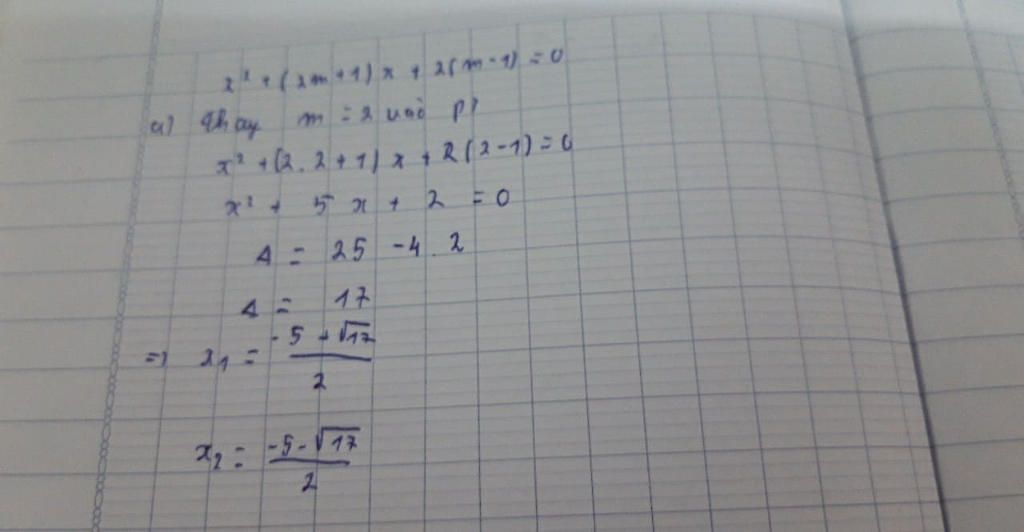 x² + (2m+1)x + 2(m-1) = 0
a) Thay m = 2 vào pt
x² + (2.2+1)x + 2(2-1) = 0
x² + 5x + 2 = 0
Δ = 25 - 4.2
Δ = 17
=> x₁ = (-5+√17)/2
x₂ = (-5-√17)/2